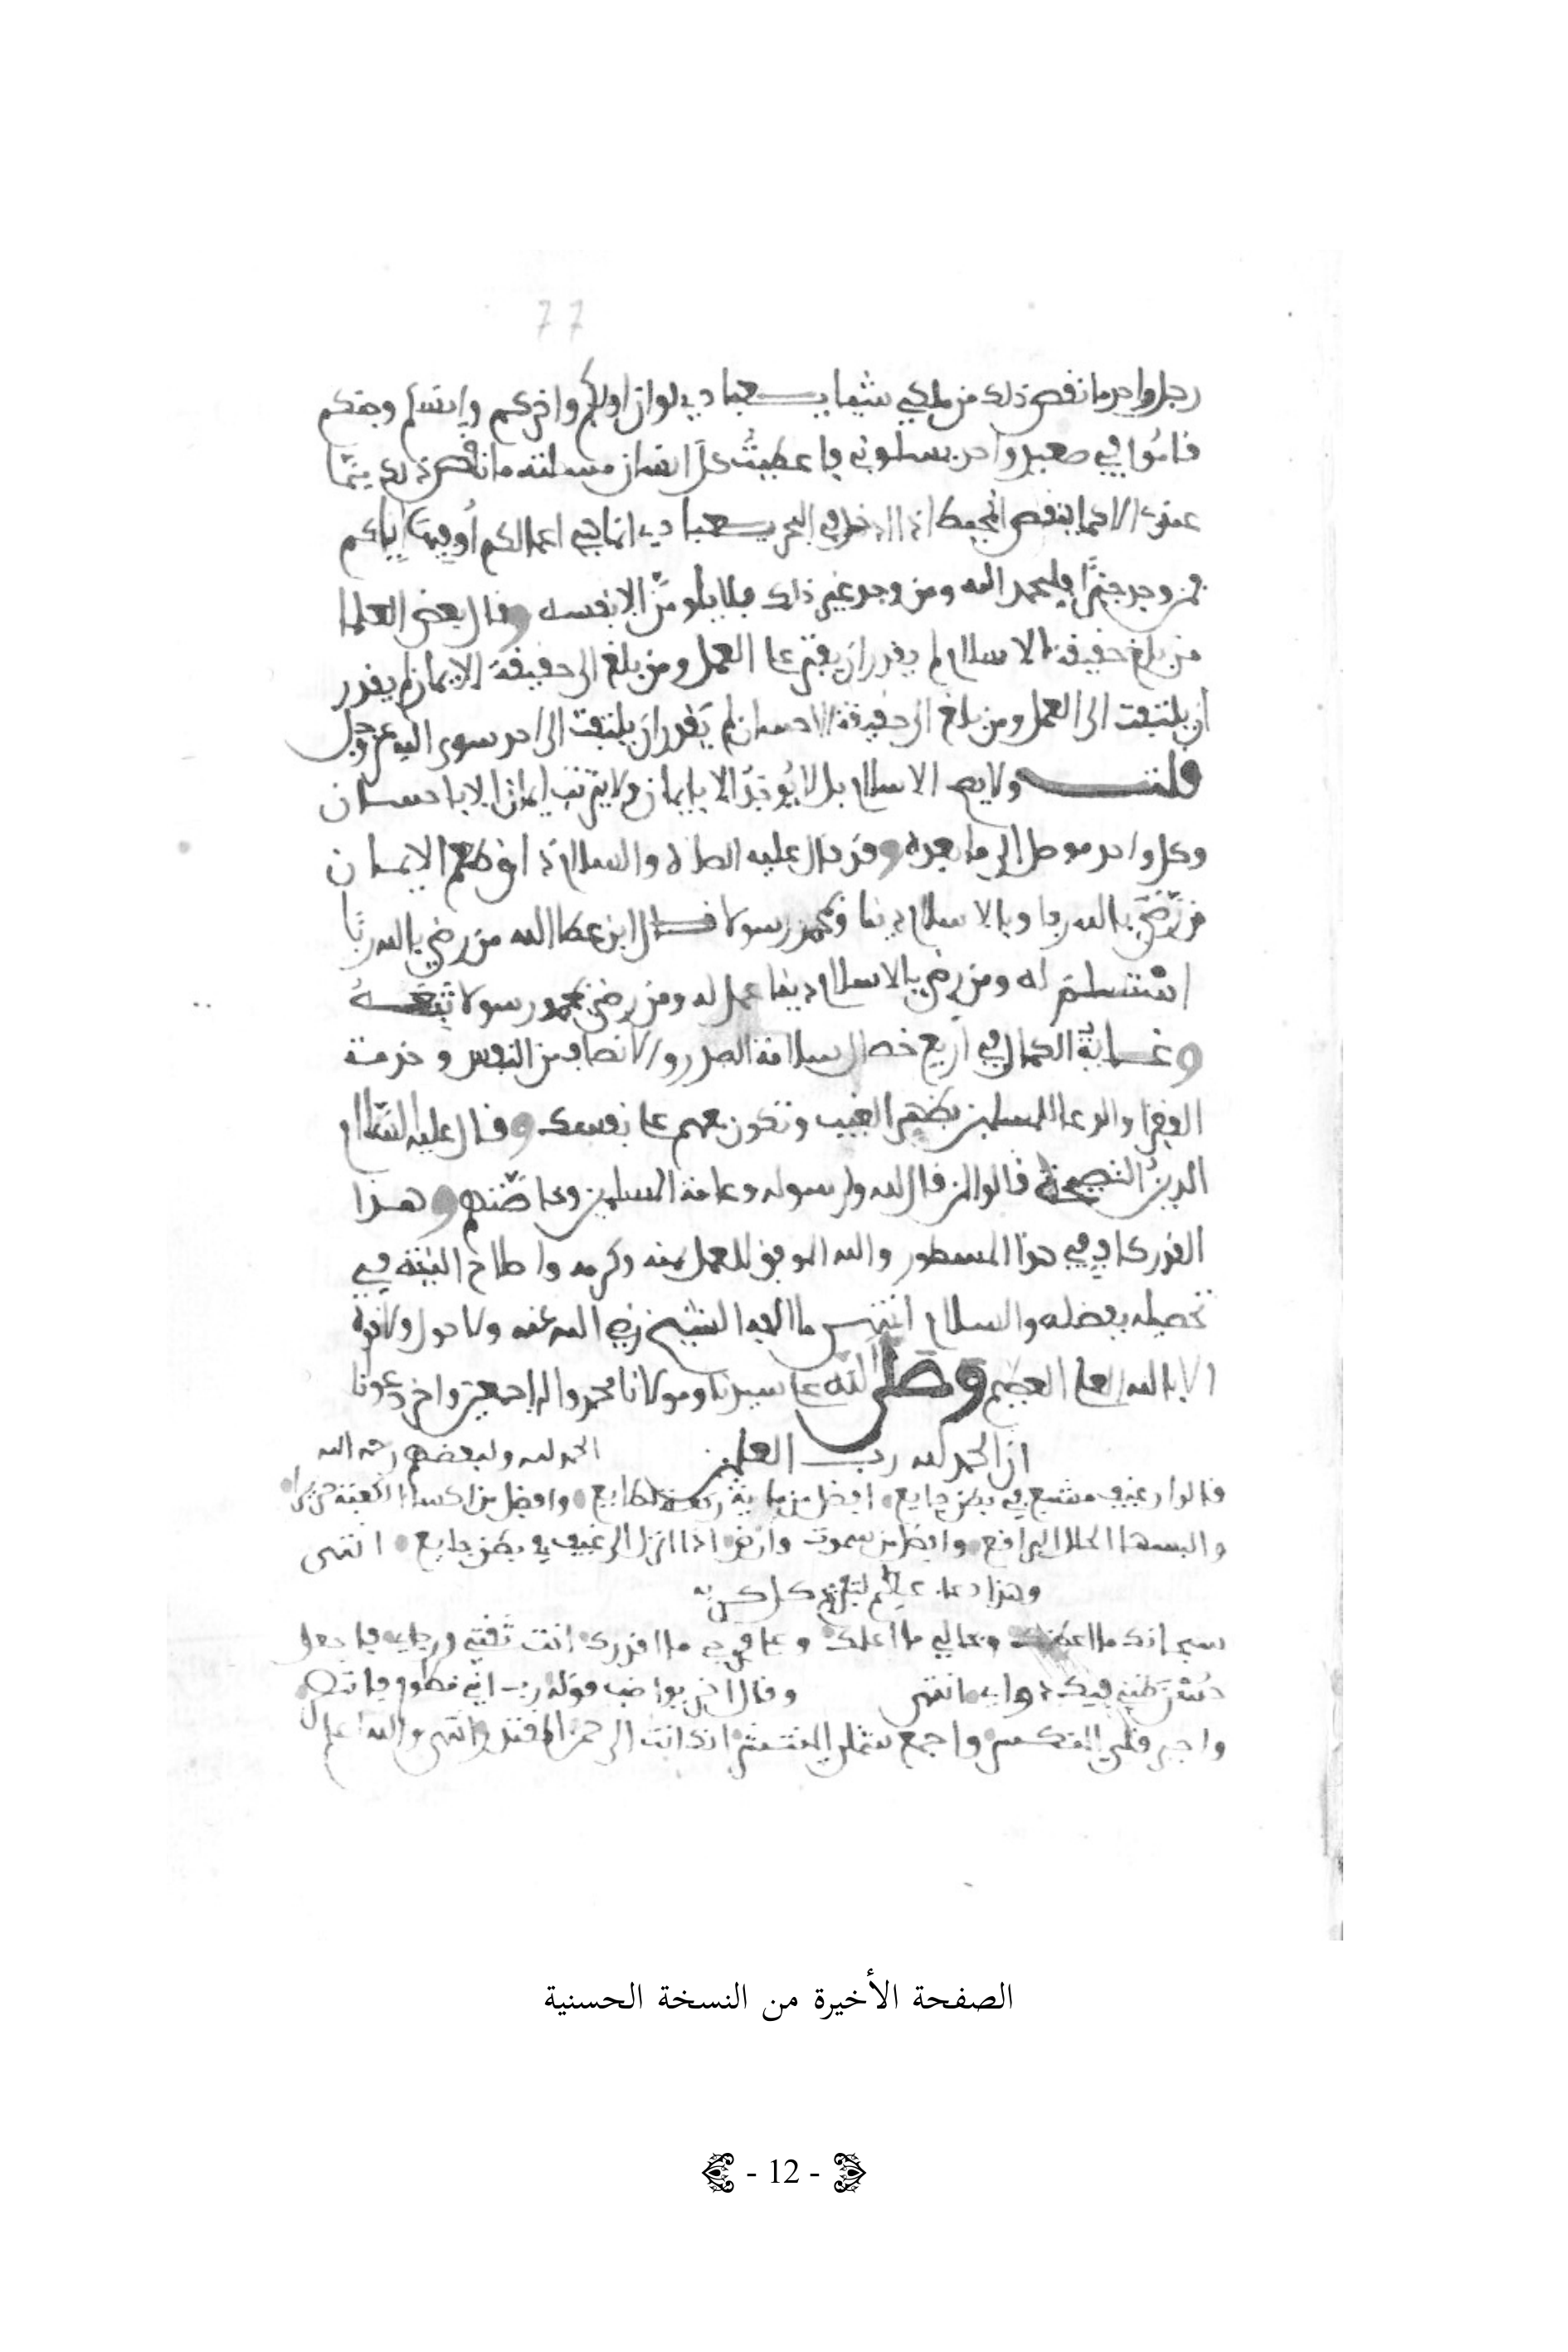 77
رجل واحد ما نقص ذلك من ملكي شيئا يــعبادي لو ان اولكم واخركم وإنسكم وجنكم
قامُوا في صعيد واحد يسلوني فاعطيتُ كلَّ انسان مسئلته ما نقص ذلك ممّا
عندي الا كما ينقص المخيط اذا ادخل في البحر يــعبادي انما هي اعمالكم أُوفيها إياكم
فمن وجد خيرًا فليحمد الله ومن وجد غير ذلك فلا يلومنّ الا نفسه وقال بعض العلما
من بلغ حقيقة الاسلام لم يقدر ان يفتر عن العمل ومن بلغ الى حقيقة الايمان لم يقدر
ان يلتفت الى العمل ومن بلغ الى حقيقة الاحسان لم يقدر ان يلتفت الى احد سوى الله عز وجل
قلتــ ولا يصح الاسلام بل لا يُوجدُ الا بايمان ولا يترتب ايمان الا باحسان
وكل واحد موصل الى ما بعده وقد قال عليه الصلاة والسلام ذاق طعم الايمان
من رَّضيَ بالله ربا وبالاسلام دينا وبمحمد رسولا قــال ابن عطا الله من رضي بالله ربًا
استسلم له ومن رضي بالاسلام دينا عمل له ومن رضي بمحمد رسولا تَبِعَــهُ
وغــايةُ الكمال في أربع خصال سلامة الصدر والانصاف من النفس وخدمة
الفقرا والدعا للمسلمين بظهر الغيب وتكون معهم على نفسك وقــال عليه السّلام
الدينُ النصيحة قالوا لمن قال لله ولرسوله وعامة المسلمين وخاصّتهم وهــذا
القدر كاف في هذا المسطور والله الموفق للعمل بمنه وكرمه واصلاح النية في
تحصيله بفضله والسلام انتهــى ما الفه الشيخ رضي الله عنه ولا حول ولا قوة
الا بالله العلي العظيم وصلى الله على سيدنا ومولانا محمد واله اجمعين واخر دعونا
ان الحمد لله ربــ العلمين الحمد لله ولبعضهم رحمه الله
قالوا رغيف مشبع في بطن جايع افضل من ماية ركعة وافضل من اكسا الكعبة
والبسها الحلل الرافع وافضل من سموت وارض اذا انزل الرغيف في بطن جايع انتهى
وهذا دعا عظيم لتفريج كل كربه
سبحانك ما اعظمك وتعالى ما اعلمك ما اقدرك انت ثقتي ورجاي فاجعل
حُسْنَ ظني فيك انتهى وقال اخر قوله رب اني مظلوم فانتصر
واجبر قلبي المنكسر واجمع شملي المنتشر انك انت الرحمن المقتدر انتهى والله اعلم
الصفحة الأخيرة من النسخة الحسنية
- 12 -